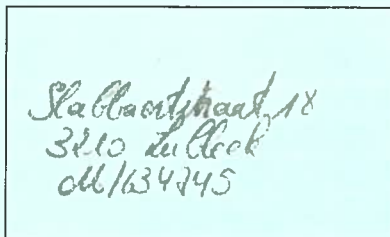 Slabbaertstraat 18
3210 Lubbeek
016/634745